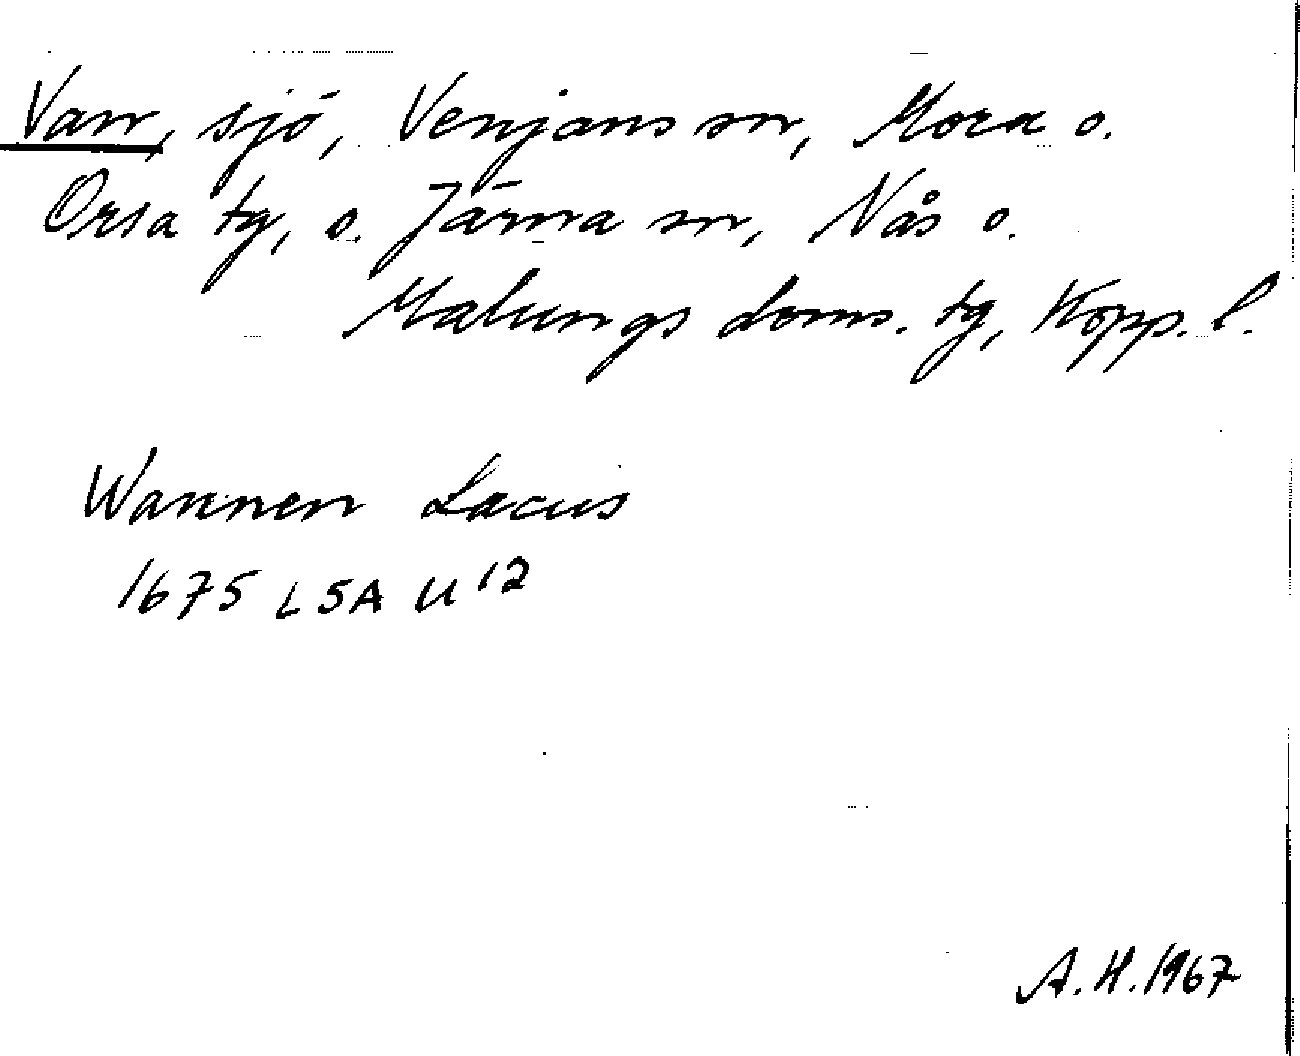 Van, sjö, Venjans sn, Mora o.
Orsa tg, o. Järna sn, Nås o.
Malungs doms. tg, Kopp. l.
Wannen Lacus
1675 LSA U 12
A. H. 1967